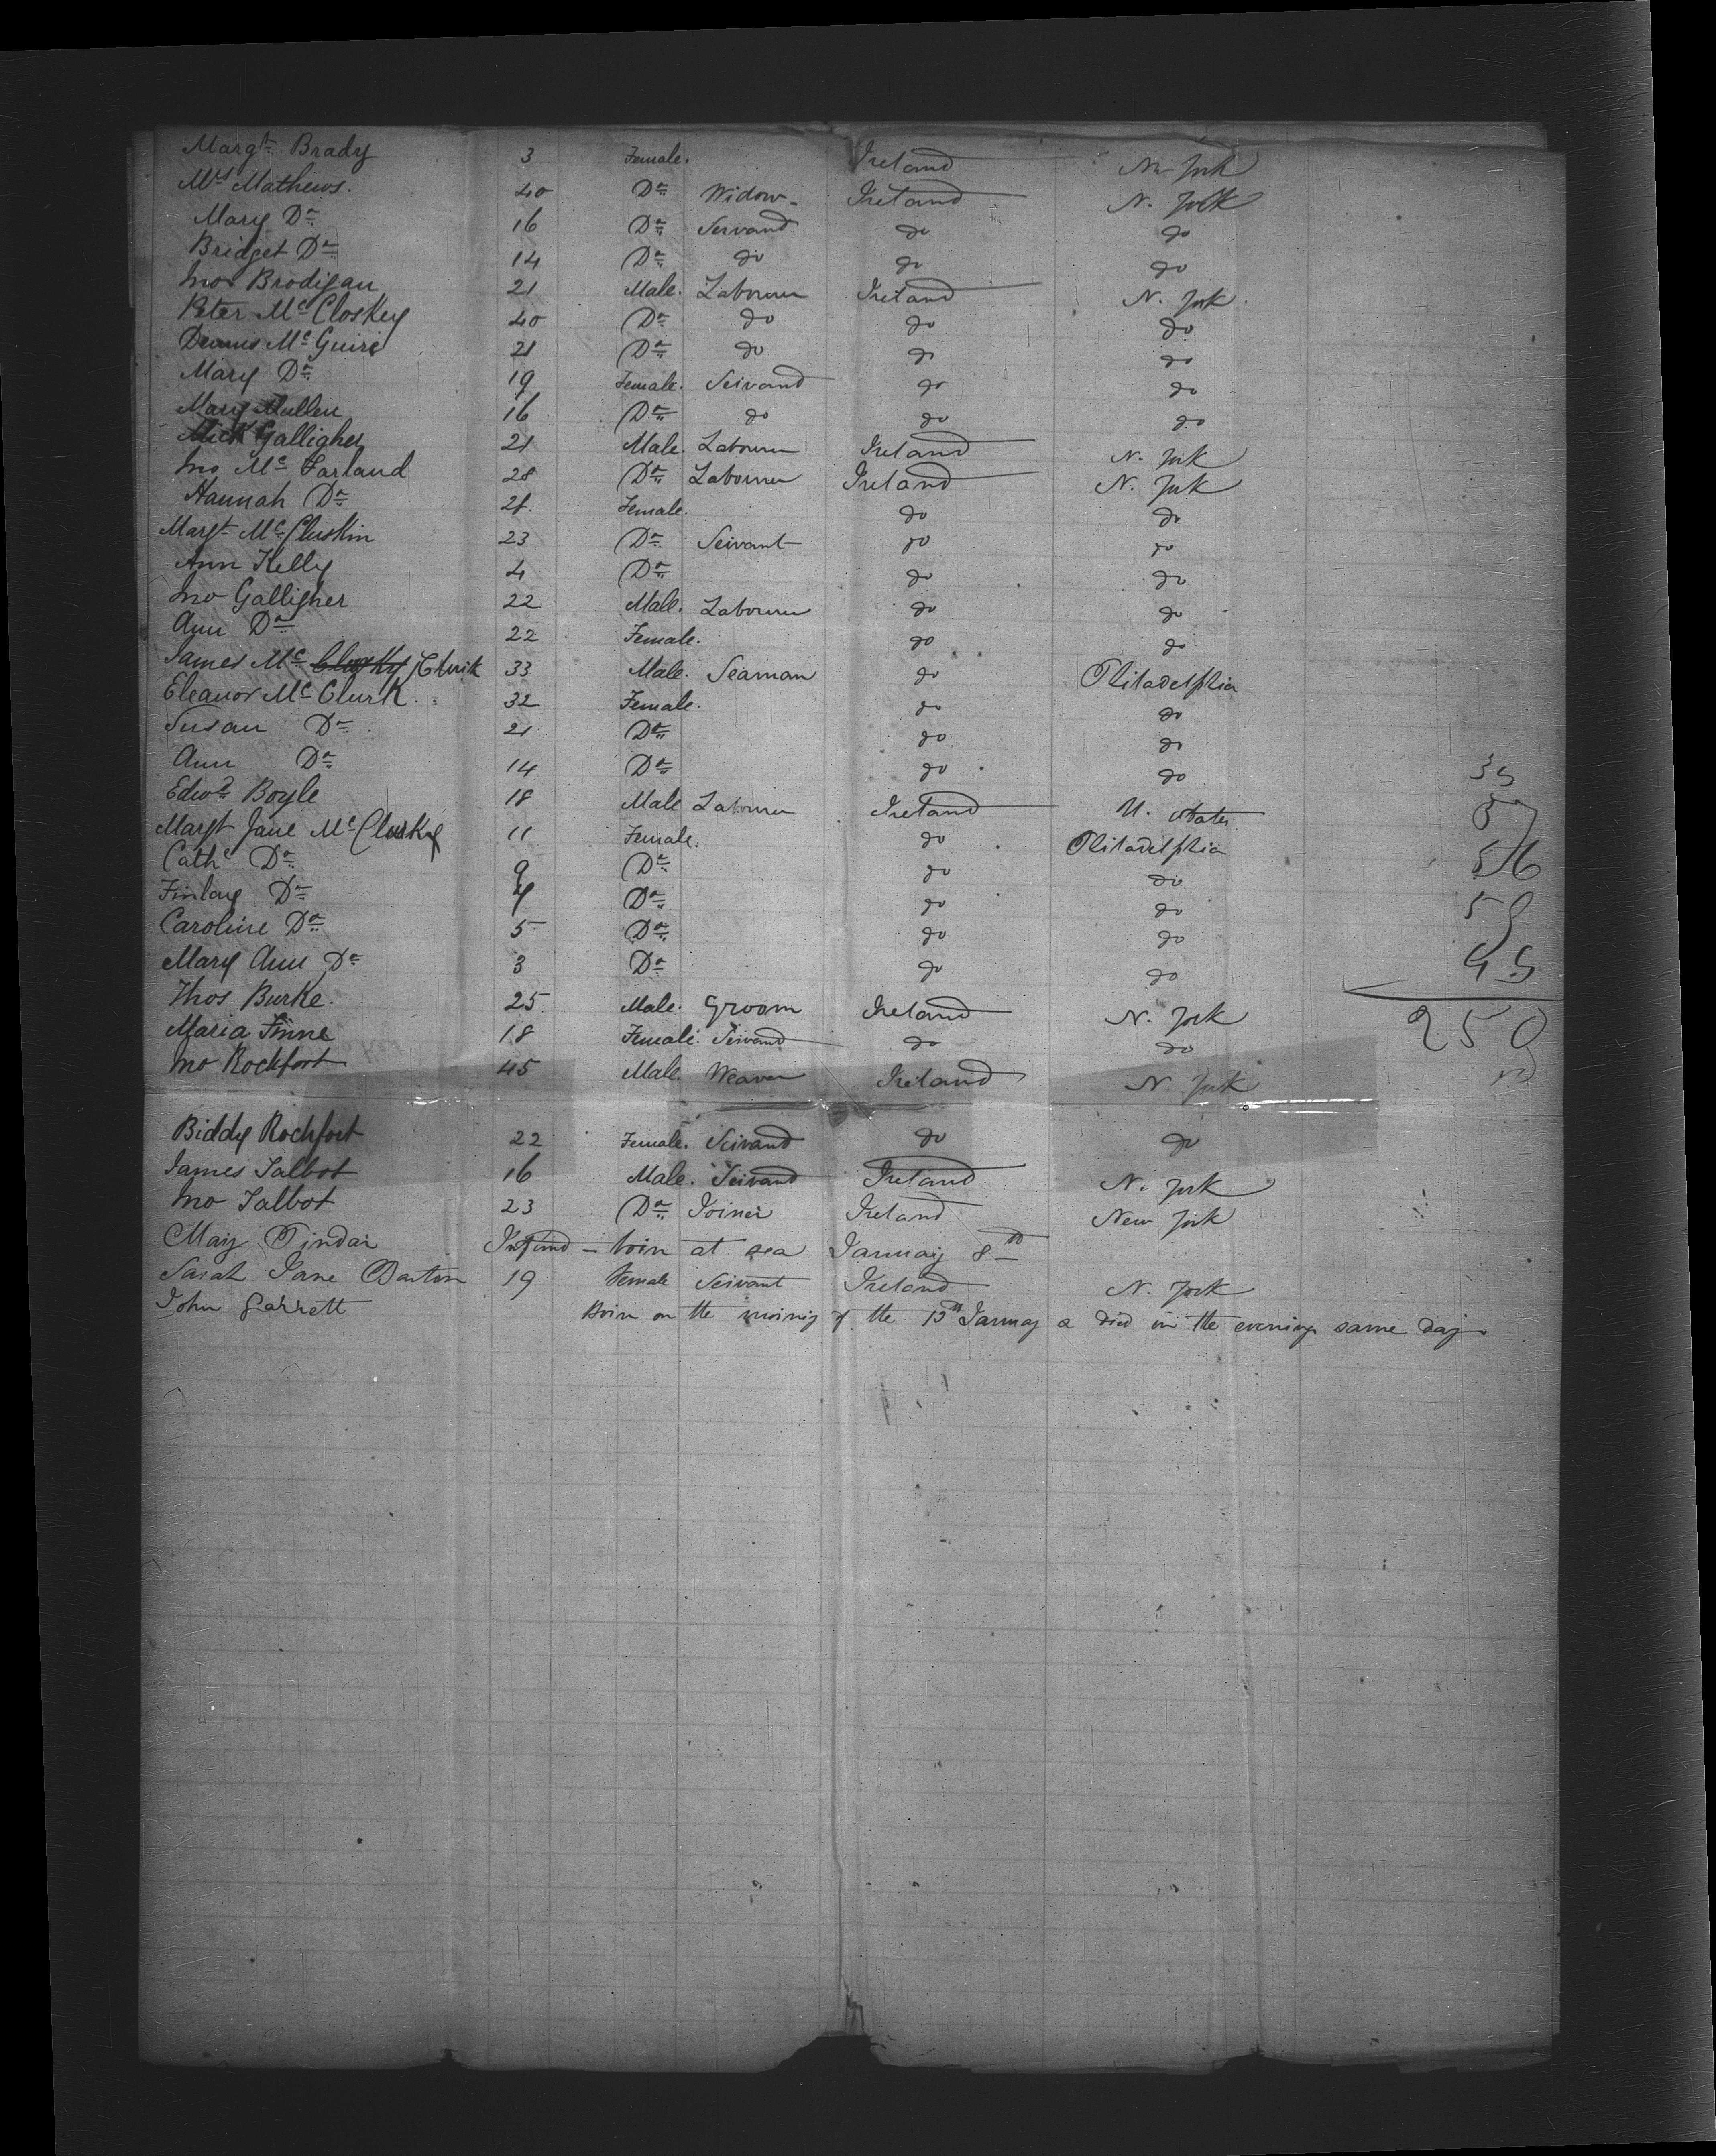 Margt Brady 3 Female. Ireland Nw York
Mrs Mathews. 40 Do Widow. Ireland N. York
Mary Do 16 Do Servand do do
Bridget Do 14 Do do do do
Jno Brodigan 21 Male. Labourer Ireland N. York
Peter Mc Closkey 40 Do do do do
Dennis Mc Guire 21 Do do do do
Mary Do 19 Female. Servand do do
Mary Mullen 16 Do do do do
Mick Galligher 21 Male. Labourer Ireland N. York
Jno Mc Farland 28 Do Labourer Ireland N. York
Hannah Do 21. Female. do do
Margt Mc Cluskin 23 Do Servant do do
Ann Kelly 4 Do do do
Jno Galligher 22 Male. Labourer do do
Ann Do 22 Female. do do
James Mc Clurk 33 Male. Seaman do Philadelphia
Eleanor Mc Clurk 32 Female. do do
Susan Do 21 Do do do
Ann Do 14 Do do do
Edwd Boyle 18 Male Labourer Ireland U. States
Margt Jane Mc Clurk 11 Female. do Philadelphia
Cathe Do 9 Do do do
Finlay Do 7 Do do do
Caroline Do 5 Do do do
Mary Ann Do 3 Do do do
Thos Burke. 25 Male. Groom Ireland N. York
Maria Finne 18 Female. Servand do do
250
Jno Rockfort 45 Male. Weaver Ireland N. York
Biddy Rochfort 22 Female. Servand do do
James Talbot 16 Male. Servand Ireland N. York
Jno Talbot 23 Do Joiner Ireland New York
Mary Tindar Infand - born at sea January 8th
Sarah Jane Barton 19 Female Servant Ireland N. York
John Garrett Born on the morning of the 13th January & died in the evening same day